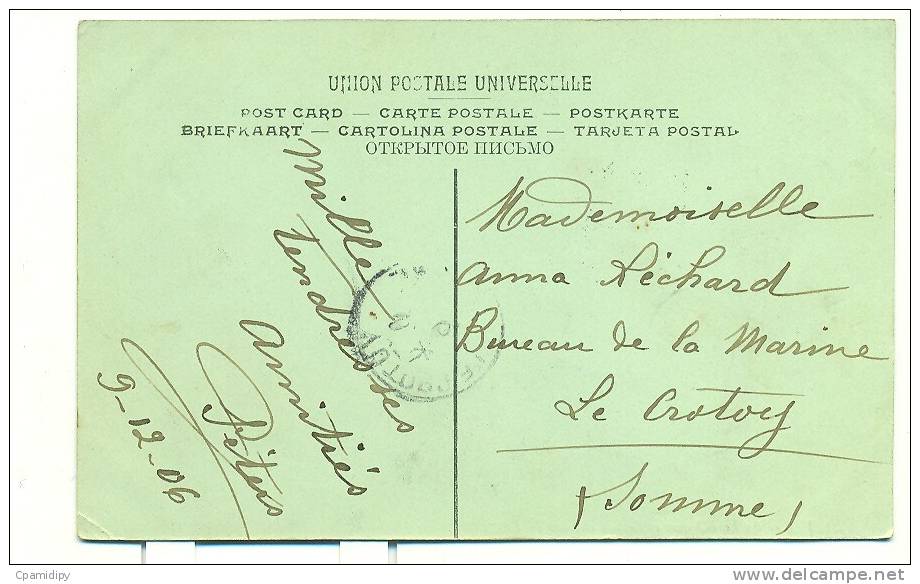 UNION POSTALE UNIVERSELLE
POST CARD — CARTE POSTALE — POSTKARTE
BRIEFKAART — CARTOLINA POSTALE — TARJETA POSTAL
ОТКРЫТОЕ ПИСЬМО
Mille
tendresses
Amitiés
9-12-06
Mademoiselle
Anna Réchard
Bureau de la Marine
Le Crotoy
(Somme)
Cpamidipy
www.delcampe.net